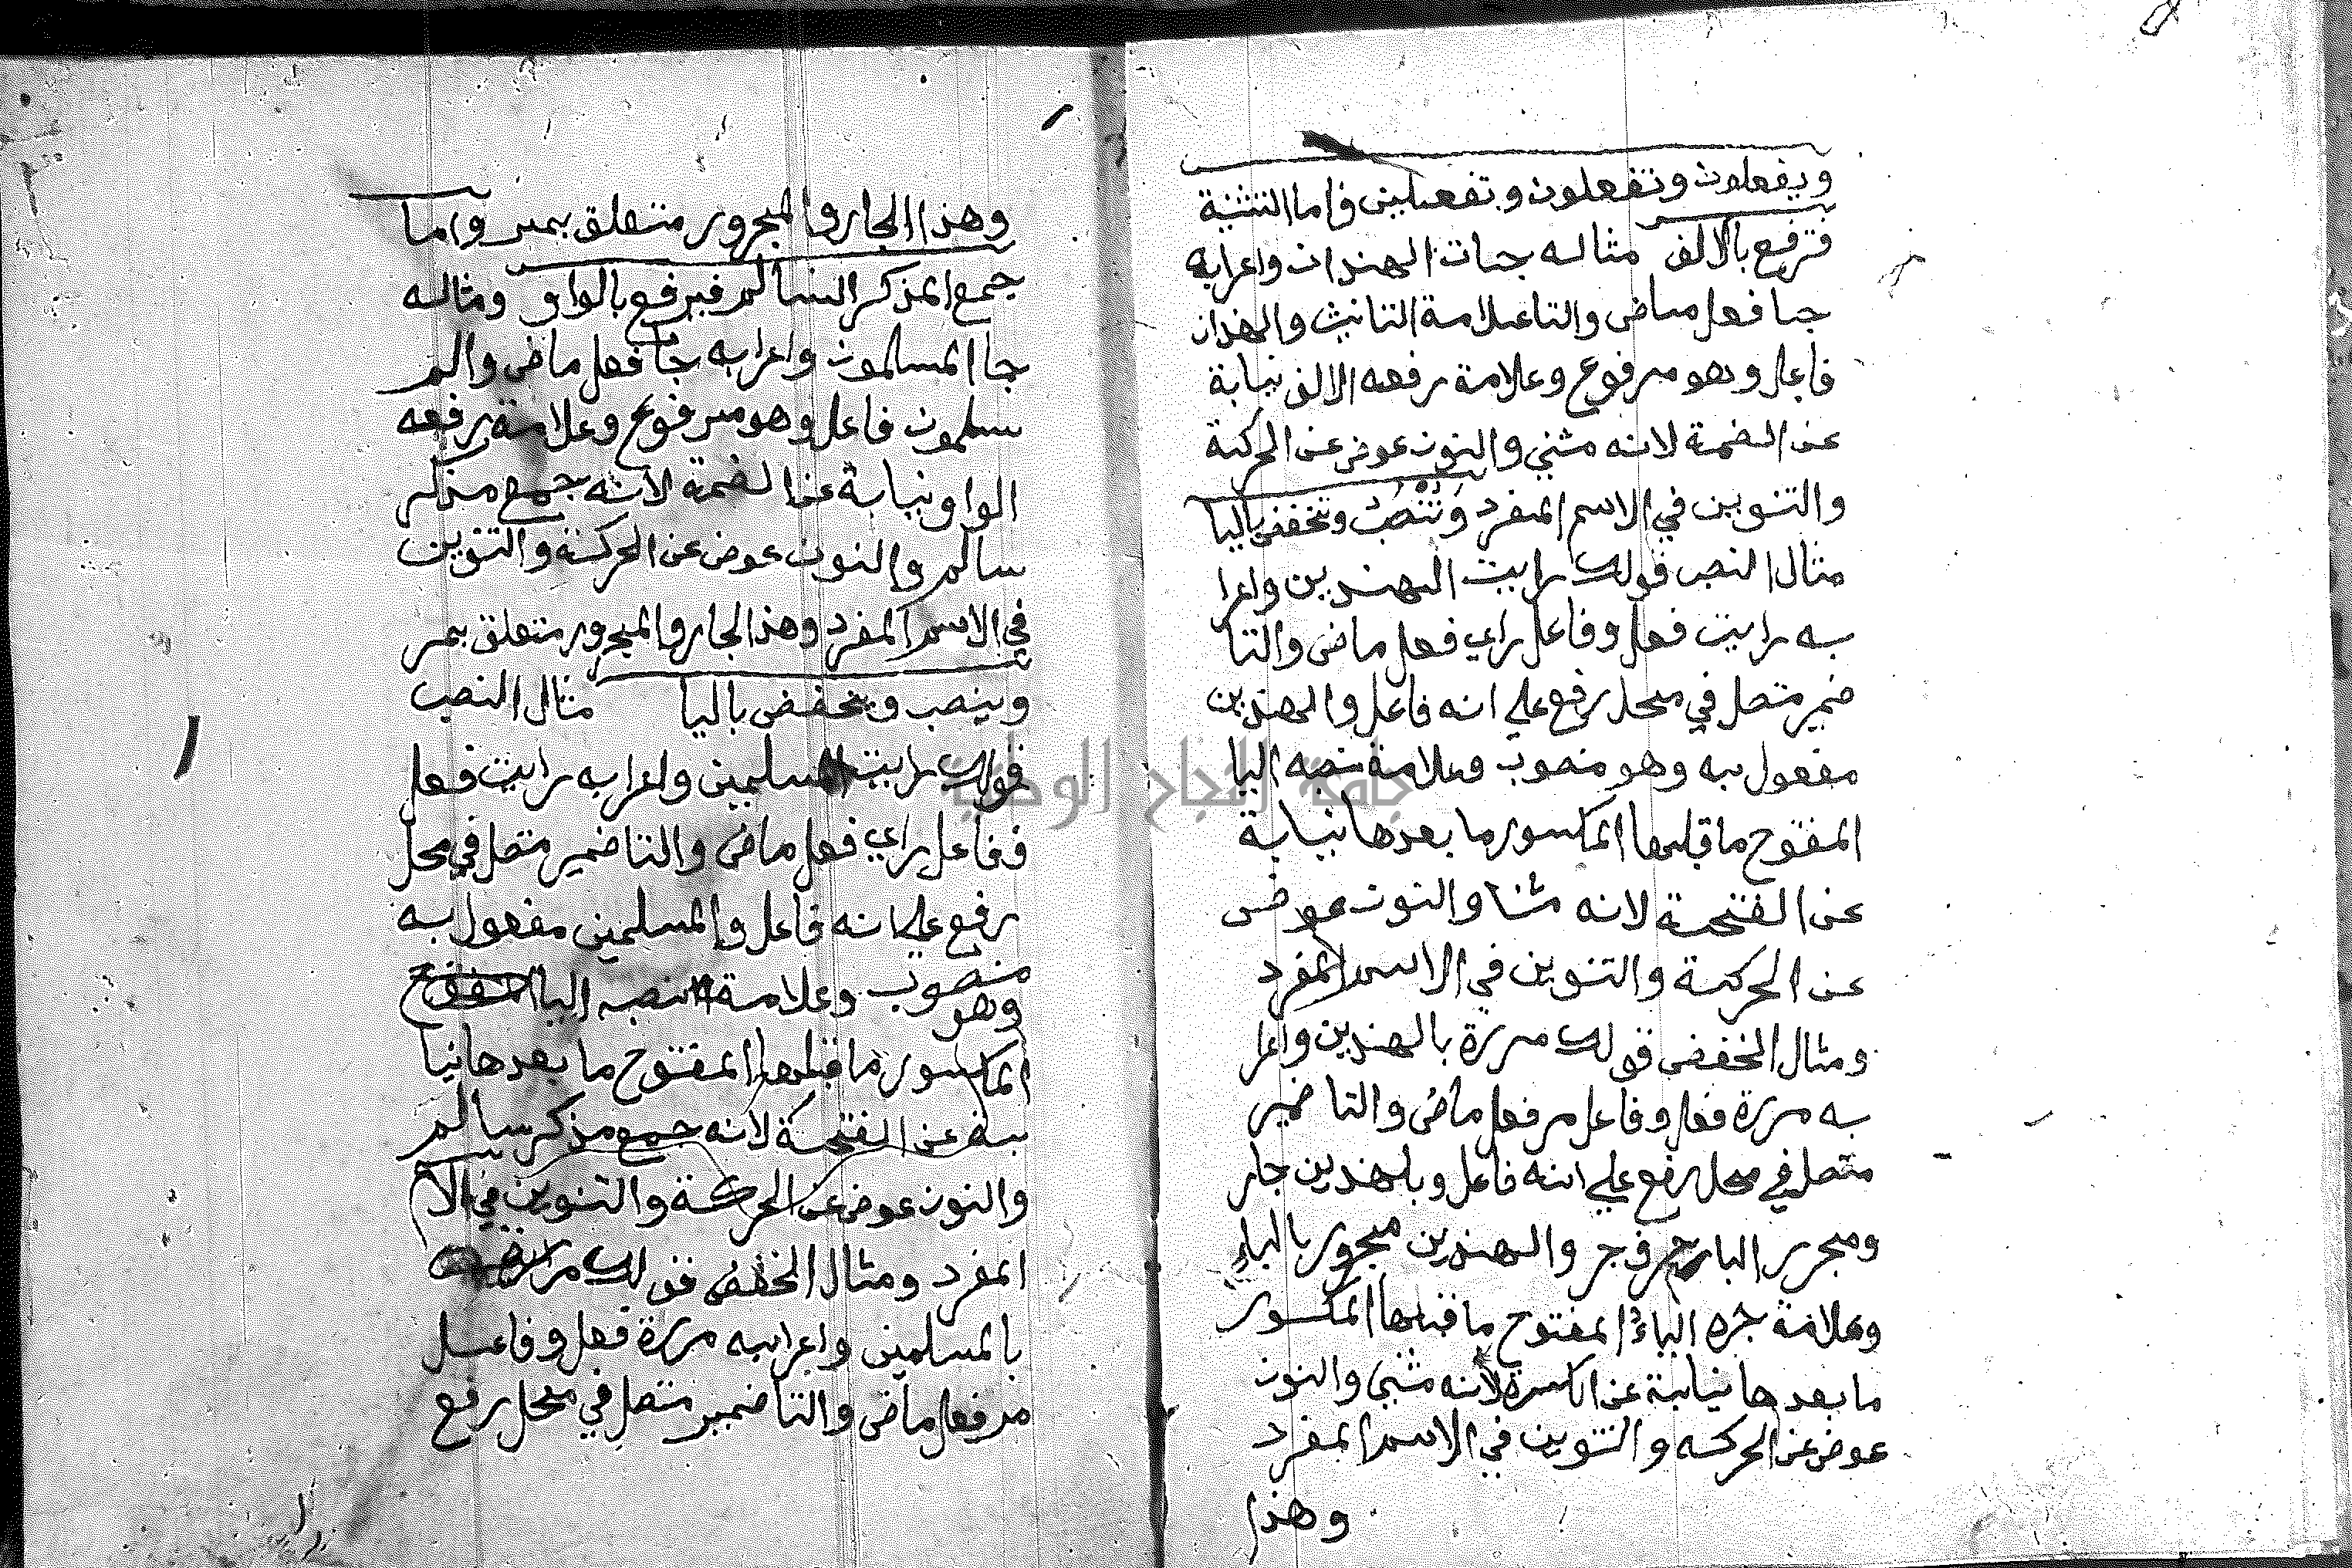 ويفعلون وتفعلون وتفعلين فاما التثنية
فترفع بالالف مثاله جات الهندان واعرابه
جا فعل ماض والتا علامة التانيث والهندان
فاعل وهو مرفوع وعلامة رفعه الالف نيابة
عن الضمة لانه مثني والنون عوض عن الحركة
والتنوين في الاسم المفرد وَتُنْصَبُ وتخفض باليا
مثال النصب قولك رايت الهندين واعرا
به رايت فعل وفاعل راي فعل ماض والتا
ضمير متصل في محل رفع علي انه فاعل والهندين
مفعول به وهو منصوب وعلامة نصبه اليا
المفتوح ما قبلها المكسور ما بعدها نيابة
عن الفتحة لانه مثنا والنون عوض
عن الحركة والتنوين في الاسم المفرد
ومثال الخفض قولك مررة بالهندين واعرا
به مررة فعل وفاعل مر فعل ماض والتا ضمير
متصل في محل رفع علي انه فاعل وبلهندين جار
ومجرير البا حرف جر والهندين مجرور بالباءِ
وعلامة جره الياءُ المفتوح ما قبلها المكسور
ما بعدها نيابة عن الكسرة لأنه مثني والنون
عوض عن الحركه والتنوين في الاسم المفرد
وهذا
وهذا الجار والمجرور متعلق بمر واما
جمع المذكر السالم فيرفع بالواو ومثاله
جا المسلمون واعرابه جا فعل ماض والم
سلمون فاعل وهو مرفوع وعلامة رفعه
الواو نيابة عن الضمة لانه جمع مذكر
سالم والنون عوض عن الحركة والتنوين
في الاسم المفرد وهذا الجار والمجرور متعلق بمر
وينصب ويخفض باليا مثال النصب
قولك رايت المسلمين واعرابه رايت فعل
وفاعل راي فعل ماض والتا ضمير متصل في محل
رفع علي انه فاعل والمسلمين مفعول به
وهو منصوب وعلامة نصبه اليا المفتوح
المكسور ما قبلها المفتوح ما بعدها نيا
بة عن الفتحة لانه جمع مذكر سالم
والنون عوض عن الحركة والتنوين في الاسم
المفرد ومثال الخفض قولك مررة
بالمسلمين واعرابه مررة فعل وفاعل
مر فعل ماض والتا ضمير متصل في محل رفع
جامعة النجاح الوطنية